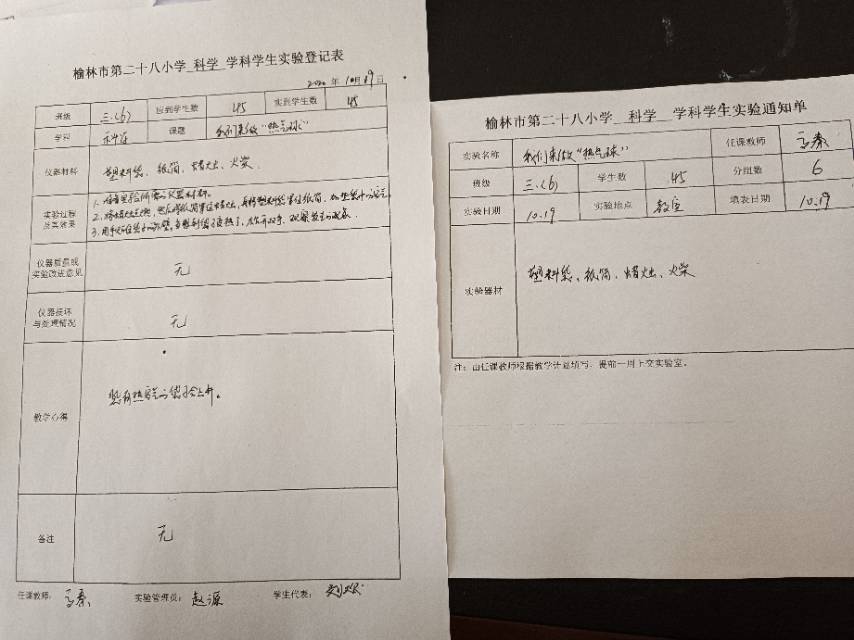 榆林市第二十八小学 科学 学科学生实验登记表
2020 年 10月19日
班级 三.(6) 应到学生数 45 实到学生数 45
学科 科学 课题 我们来做“热气球”
仪器材料 塑料袋、纸筒、蜡烛、火柴
实验过程及其效果
1. 准备实验所需的仪器材料。
2. 将蜡烛点燃,然后
3. 用手
仪器质量或实验改进意见 无
仪器损坏与处理情况 无
教学心得 装有热空气的袋子会上升。
备注 无
任课教师: 高秦 实验管理员: 赵源 学生代表: 刘
榆林市第二十八小学 科学 学科学生实验通知单
实验名称 我们来做“热气球” 任课教师 高秦
班级 三.(6) 学生数 45 分组数 6
实验日期 10.19 实验地点 教室 填表日期 10.19
实验器材 塑料袋、纸筒、蜡烛、火柴
注:由任课教师根据教学计划填写,提前一周上交实验室。